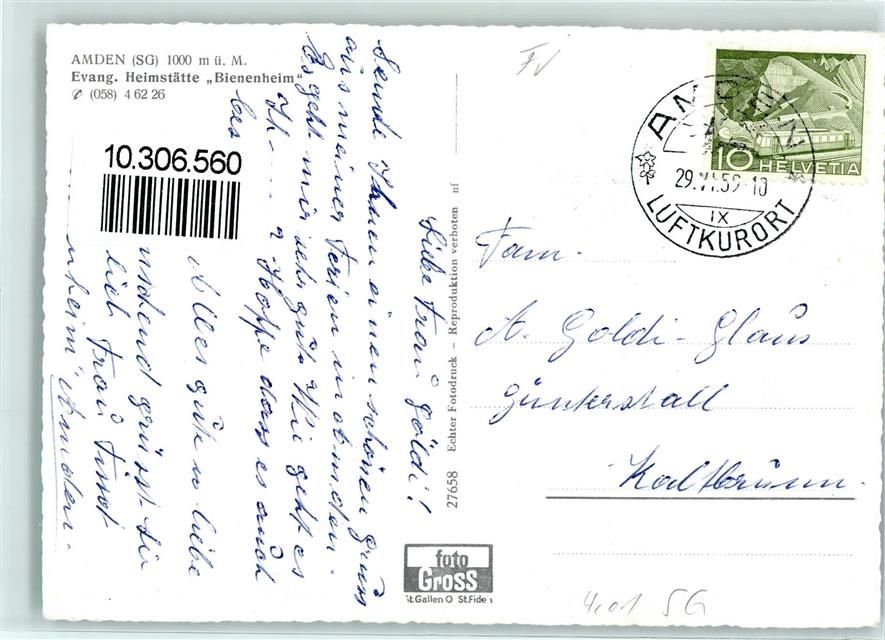 AMDEN (SG) 1000 m ü. M.
Evang. Heimstätte „Bienenheim"
✆ (058) 4 62 26
10.306.560
Liebe Frau Göldi!
Sende Ihnen einen schönen gruss
aus meiner Ferien in Amden.
Es geht mir sehr gut. Wie geht es
Ih Hoffe dass es auch
bes
Alles gute u liebe
grüsst Sie
Frau
nheim" Amden.
27658 Echter Fotodruck – Reproduktion verboten nf
foto
Gross
St.Gallen O St.Fiden
AMDEN
29.VI.59-10
IX
LUFTKURORT
10 HELVETIA
Fam.
A. Göldi-Glaus
Günterstall
Kaltbrunn.
4.01 SG